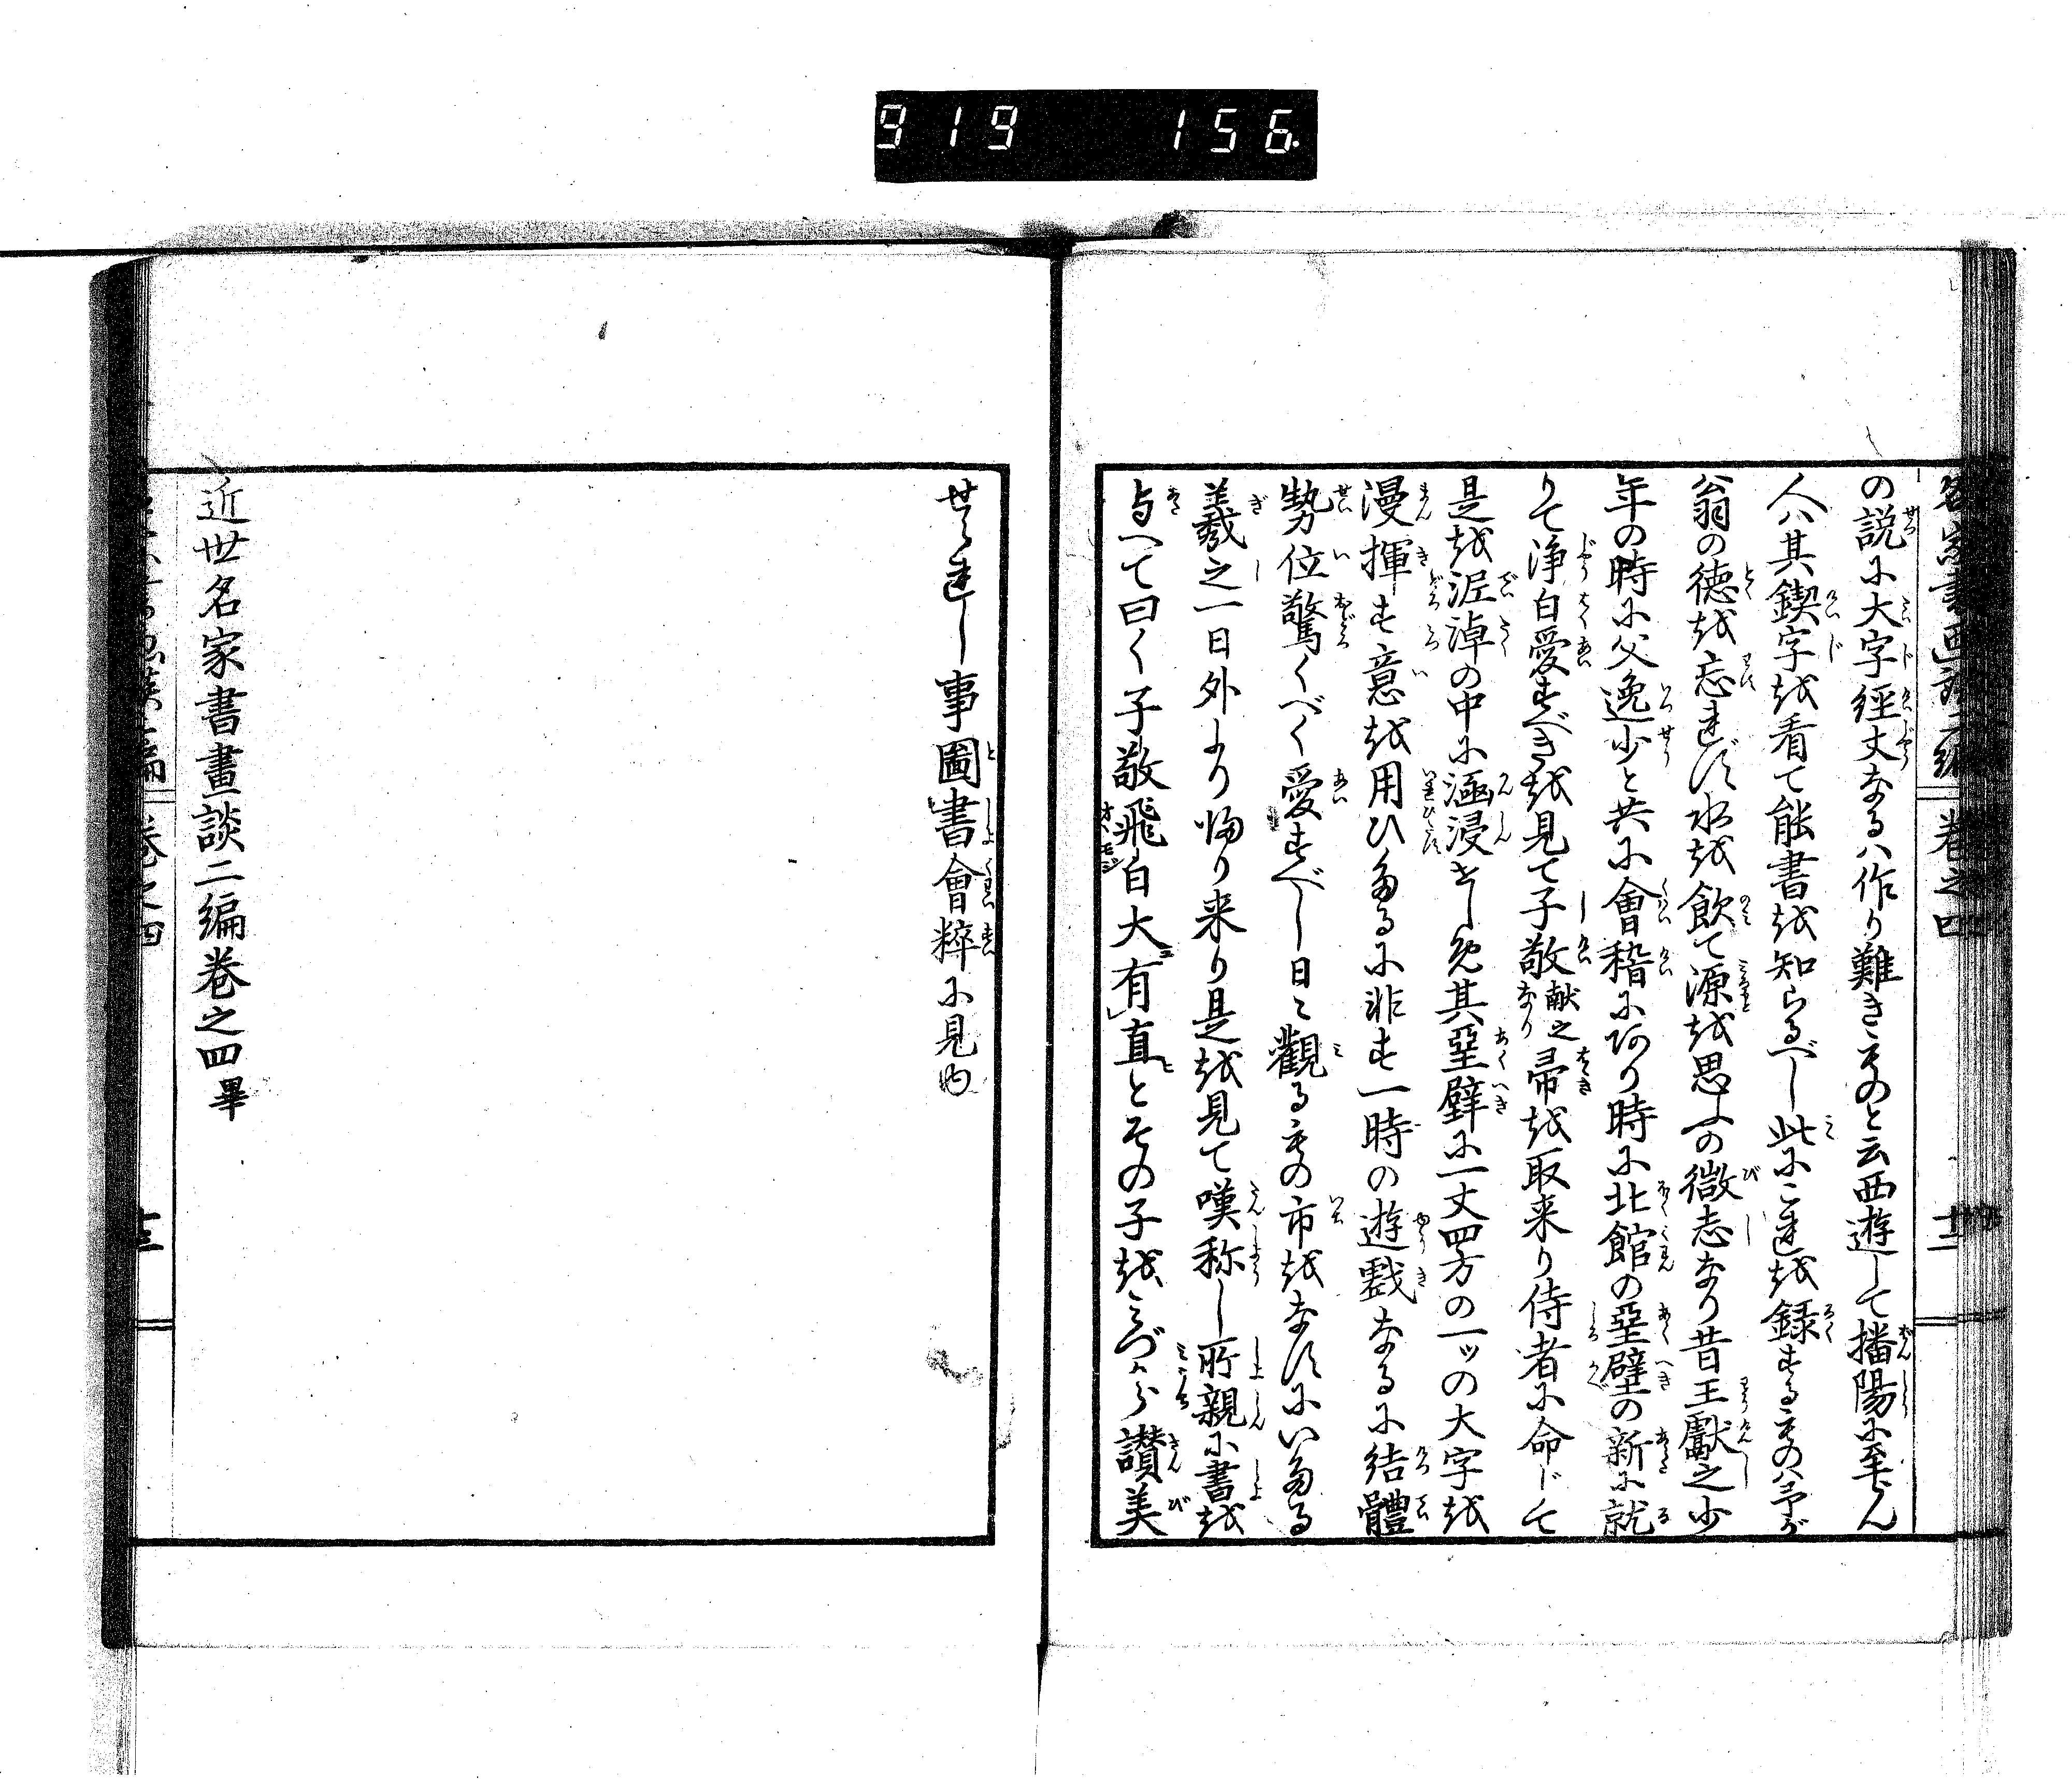 919 156
の説に大字經丈なるハ作り難きものと云西遊して播陽に至らん
人ハ其鍥字を看て能書を知らるべし此にこれを録するものハ予が
翁の徳を忘れず水を飲て源を思ふの微志なり昔王獻之少
年の時に父逸少と共に會稽にあり時に北館の堊壁の新に就
りて浄白愛すべきを見て子敬献之なり帚を取来り侍者に命じて
是を泥淖の中に涵浸せしめ其堊壁に一丈四方の一ツの大字を
漫揮す意を用ひたるに非す一時の遊戯なるに結體
勢位驚くべく愛すべし日々觀るもの市をなすにいたる
羲之一日外より帰り来り是を見て嘆称し所親に書を
与へて曰く子敬飛白大有直とその子をみづから讃美
せられし事圖書會粹に見ゆ
近世名家書畫談二編巻之四畢
巻之四